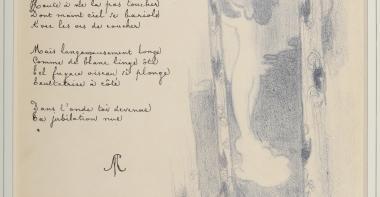 Haute à ne la pas toucher
Dont maint ciel se bariole
Avec les ors de coucher
Mais langoureusement longe
Comme de blanc linge ôté
Tel fugace oiseau si plonge
Exultatrice à côté
Dans l'onde toi devenue
Ta jubilation nue